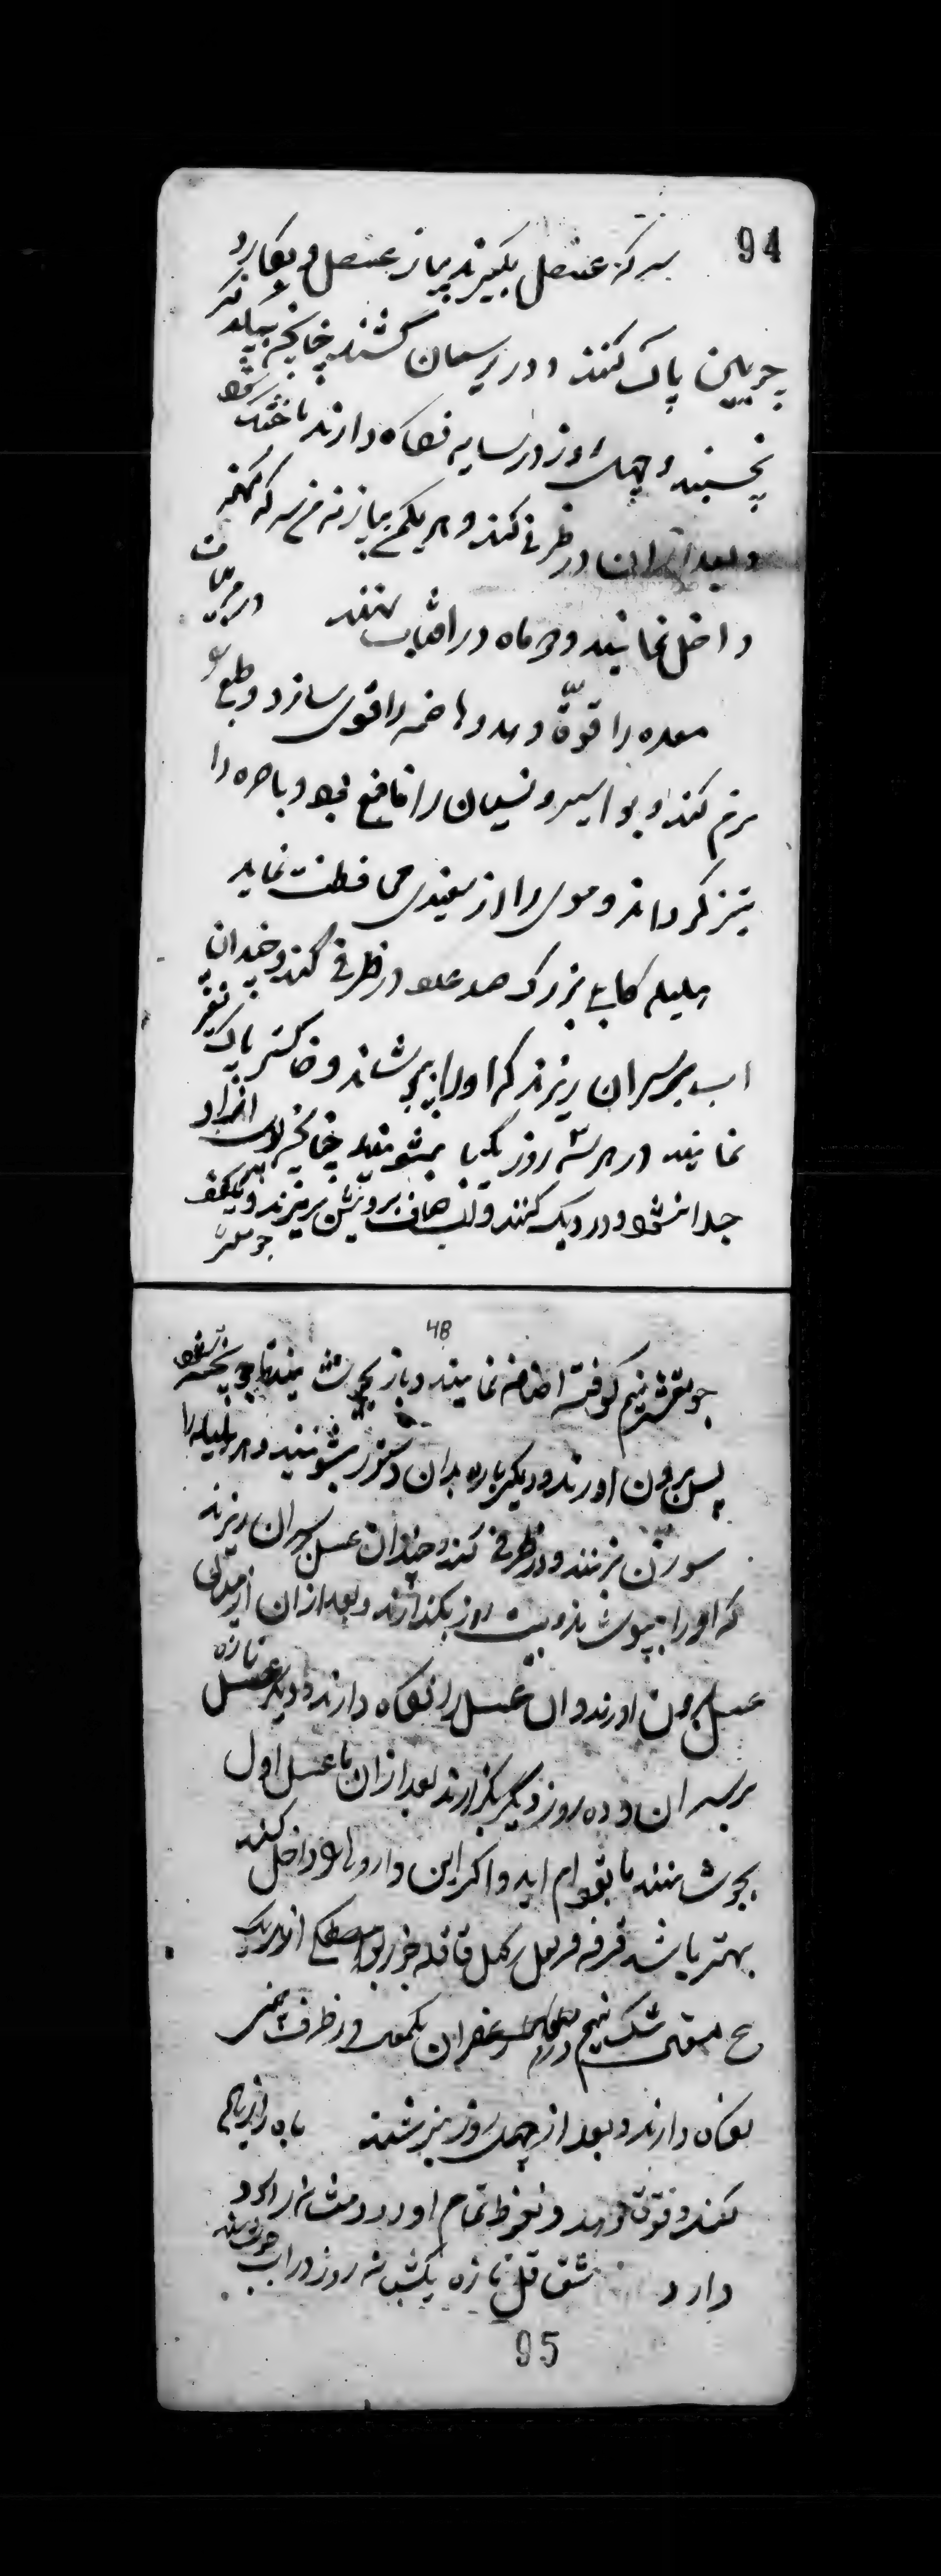 94
سرکه عنصل بگیرند پیاز عنصل و بکارد
چوبین پاک کنند و در ریسمان کشند چنانچه بیکدیگر
نچسبند و چهل روز در سایه نگاه دارند تا خشک شود
و بعد از آن در ظرفی کنند و هر یکمن پیاز نه من سرکه کهنه
داخل نمایند و دو ماه در آفتاب نهند در مربیات
معده را قوّة دهد و هاضمه را قوی سازد و طبع
نرم کند و بواسیر و نسیان را نافع بود و باصره را
تیز گرداند و موی را از سفیدی محافظت نماید
هلیله کابلی بزرگ صد عدد در ظرفی کنند و چندان
اب بر سر ان ریزند که او را بپوشاند و خاکستر پاک
نمایند و در هر سه روز یکبار بشویند چنانچه اجزاء
جدا نشود و در دیک کنند و اب صاف برویش بریزند و یککف
جو مقشر
48
جو مقشر نیم کوفته اضافه نمایند و باز بجوشانند تا جو پخته شود
پس بیرون اورند و دیکر باره بدان دستور بشویند و هر هلیله را
سوزن بزنند و در ظرفی کنند و چندان عسل بر سر ان ریزند
که او را بپوشاند و بیست روز بگذارند و بعد از ان از میان
عسل بیرون اورند و ان عسل را نگاه دارند و دیگر عسل تازه
بر سر ان و ده روز دیگر بگذارند بعد از ان با عسل اول
بجوشانند تا بقوام اید و اگر این داروها داخل کنند
بهتر باشد قرفه قرنفل قاقله جوزبوا مصطکی از هر یک
مثقال مشک نیم درم زعفران یکمثقال در ظرف چینی
نگاه دارند و بعد از چهل روز بنوشند باه را زیاده
کند و قوت دهد و نعوظ تمام اورد و مثانه را سود
دارد شقاقل تازه یکشبانه روز در اب بخوشانند
95